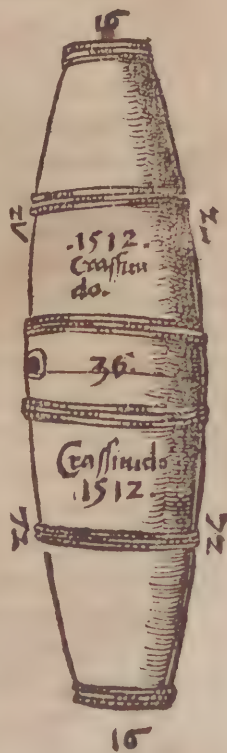 16
.1512.
Craſſitu
do.
36.
Craſſitudo
.1512.
16